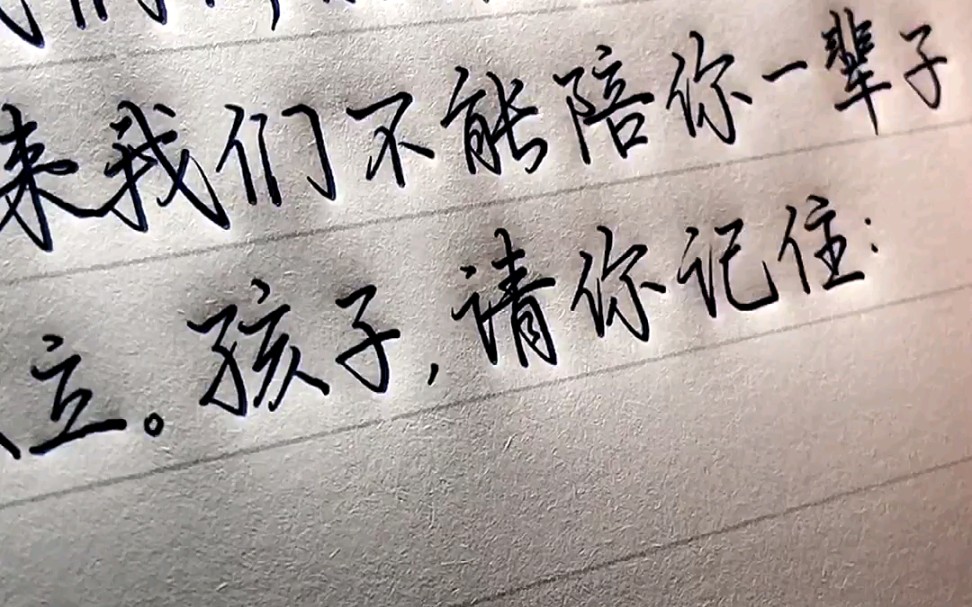 来我们不能陪你一辈子
立。孩子,请你记住: